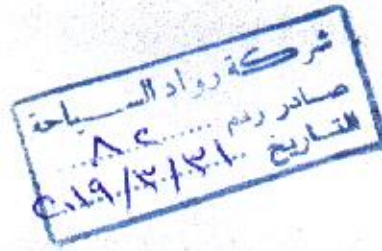 شركة رواد السياحة
صادر رقم ٨٢
التاريخ ٢٠١٩/٣/٣١